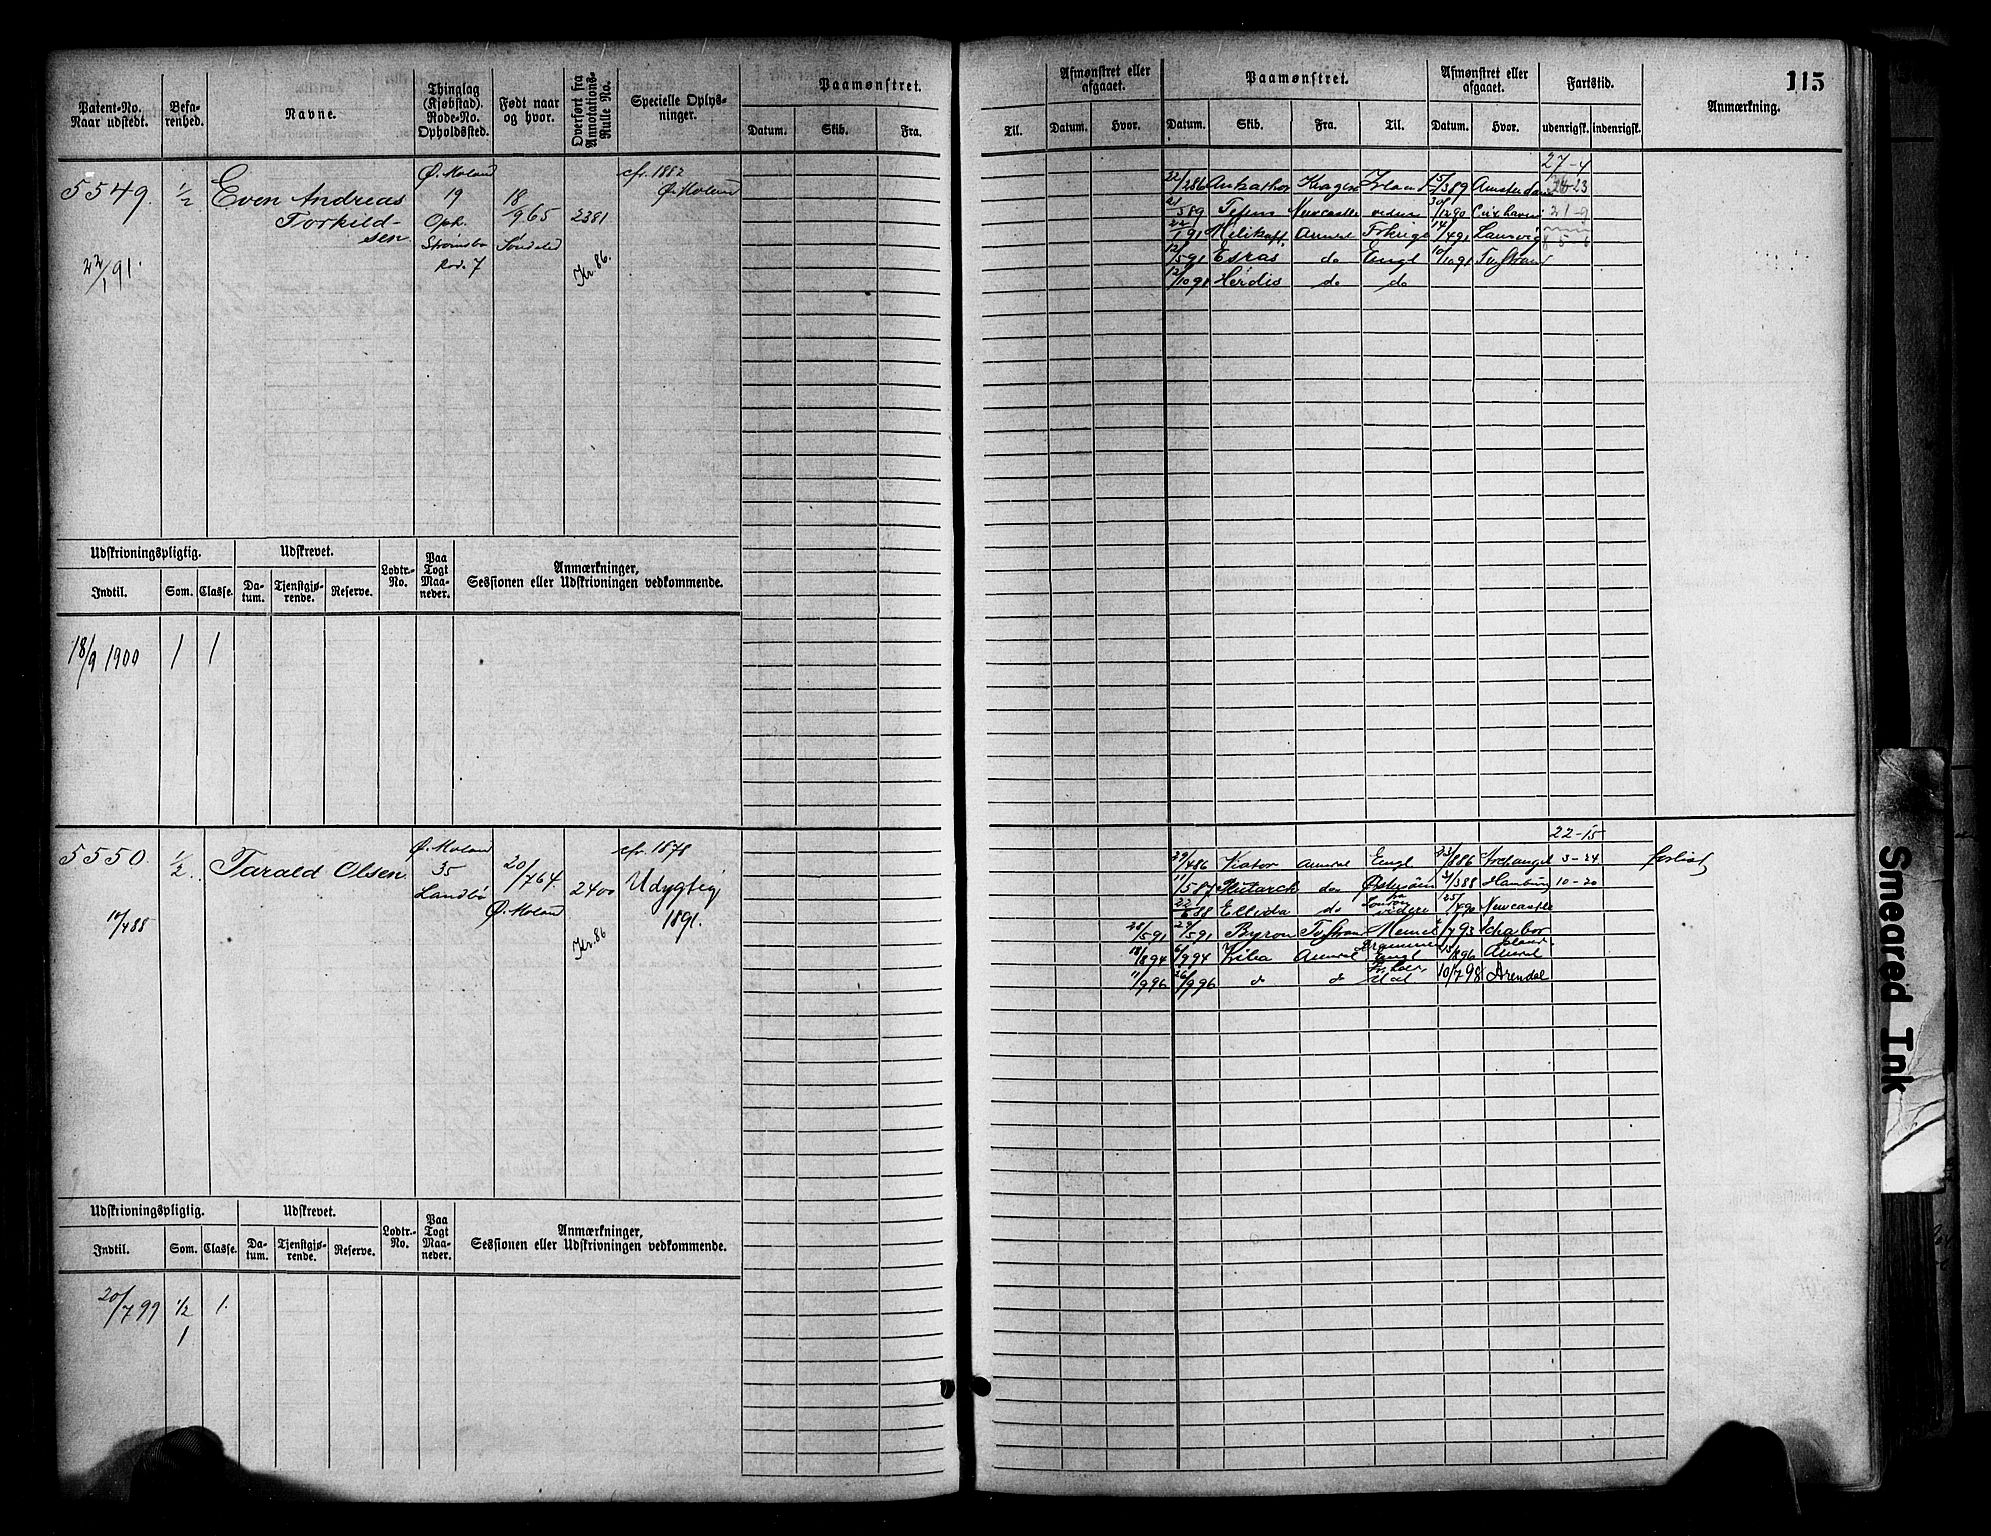 115
Patent-No.
Naar udstedt.
Befa-
renhed.
Navne.
Thinglag
(Kjøbstad).
Rode-No.
Opholdssted.
Født naar
og hvor.
Overført fra
Annotations-
Rulle No.
Specielle Oplys-
ninger.
Paamønstret.
Datum. Skib. Fra.
Til.
Afmønstret eller
afgaaet.
Datum. Hvor.
Paamønstret.
Datum. Skib. Fra. Til.
Afmønstret eller
afgaaet.
Datum. Hvor.
Fartstid.
udenrigsk. indenrigsk.
Anmærkning.
5549.
22/1 91.
1/2
Even Andreas
Torkild-
sen
Ø. Moland
19
Oph.
Strømsbo
Rode 7
18
/9 65
Søndeled
2381
Kr. 86.
cfr. 1882
Ø. Moland
27-4
22/2 86 Kragerø 15/3 89 Amsterdam 23
21/5 89 Newcastle videre 30/12 90 Cuxhaven 21-9
22/1 91 Arendal 14/4 91 Laurvig 5-6
12/5 91 Esras do Engl 10/10 91 Tvedstrand
12/10 91 Herdis do do
Udskrivningspligtig.
Indtil. Som. Classe.
Udskrevet.
Da-
tum.
Tjenstgjø-
rende.
Reserve.
Lodtr.-
No.
Paa
Togt
Maa-
neder.
Anmærkninger,
Sessionen eller Udskrivningen vedkommende.
18/9 1900 1 1
5550.
14/4 88
1/2
Tarald Olsen
Ø. Moland
35
Landbø
20
/7 64
Ø. Moland
2400
Kr. 86
cfr. 1878
Udygtig
1891.
22-15
29/4 86 Viator Arendal Engl 23/8 86 Archangel 3-24 forlist
11/5 87 Plutarch do 31/3 88 Hamburg 10-20
22/6 88 Ellida do London videre 25/4 90 Newcastle
28/5 91 29/5 91 Byron Tvedstrand Memel /7 93
18/8 94 6/9 94 Arendal Drammen Engl 15/8 96 Arendal
11/9 96 26/9 96 do do 10/7 98 Arendal
Udskrivningspligtig.
Indtil. Som. Classe.
Udskrevet.
Da-
tum.
Tjenstgjø-
rende.
Reserve.
Lodtr.-
No.
Paa
Togt
Maa-
neder.
Anmærkninger,
Sessionen eller Udskrivningen vedkommende.
20/7 99 1/2 1.
1
Smeared Ink